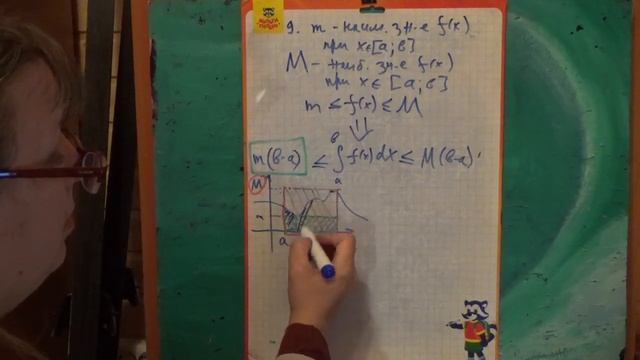 9. m - наим. зн-е f(x)
при x∈[a; в]
M - наиб. зн-е f(x)
при x ∈ [a; в]
m ≤ f(x) ≤ M
⇓
m(в-a) ≤ ∫ₐᵇ f(x)dx ≤ M(в-a)
M
a